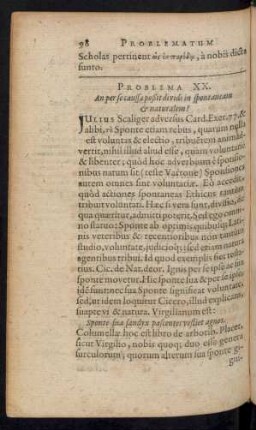 98 PROBLEMATUM
Scholas pertinent ὡς ἐν παρόδῳ, à nobis dicta
sunto.
PROBLEMA XX.
An per se caussa possit dividi in spontaneam
& naturalem?
JULIUS Scaliger adversus Card. Exer. 77, &
alibi, τὸ Sponte etiam rebus, quarum nulla
est voluntas & electio, tribuêtem animad-
vertit, nihil illud aliud esse, quàm voluntariè
& libenter; quòd hoc adverbium è spontio-
nibus natum sit (teste Varrone) Sponsiones
autem omnes sunt voluntariæ.
quòd actiones spontaneas Ethicus tantùm
tribuat voluntati. Hæc si vera sunt, divisio,
quæ
no statuo: Sponte ab optimis quibusq; Lati-
nis veteribus & recentioribus non tantùm
studio, voluntate, judicioq; sed etiam
gentibus tribui. Id quod exemplis sic
tus. Cic. de Nat. deor. Ignis per se ipse ac sua
sponte movetur. Hîc sponte sua & per se
idē sunt: nec sua Sponte significat voluntatē,
sed, ut idem loquitur Cicero, illud explicat,
suapte vi & natura. Virgilianum est:
Sponte sua sandyx pascentes vestiet agnos.
Columellæ hoc est libro de arborib. Placet,
sicut Virgilio, nobis quoq; duo esse genera
surculorum, quorum alterum sua sponte gi-
gni-